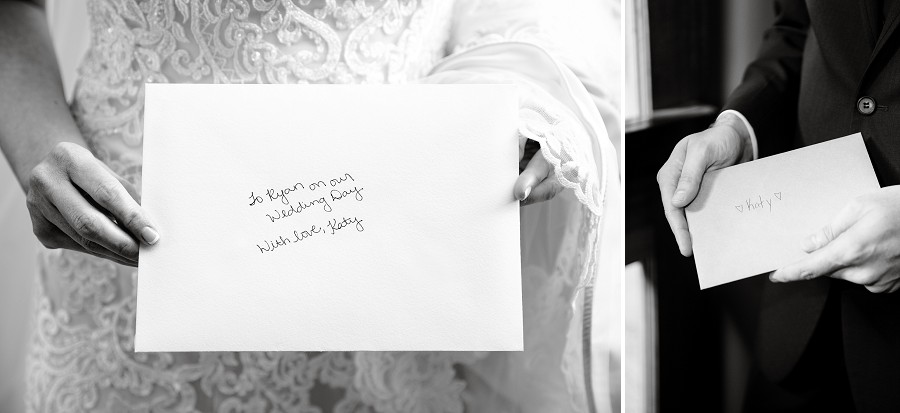 To Ryan on our
Wedding Day
With love, Katy
♡ Katy ♡